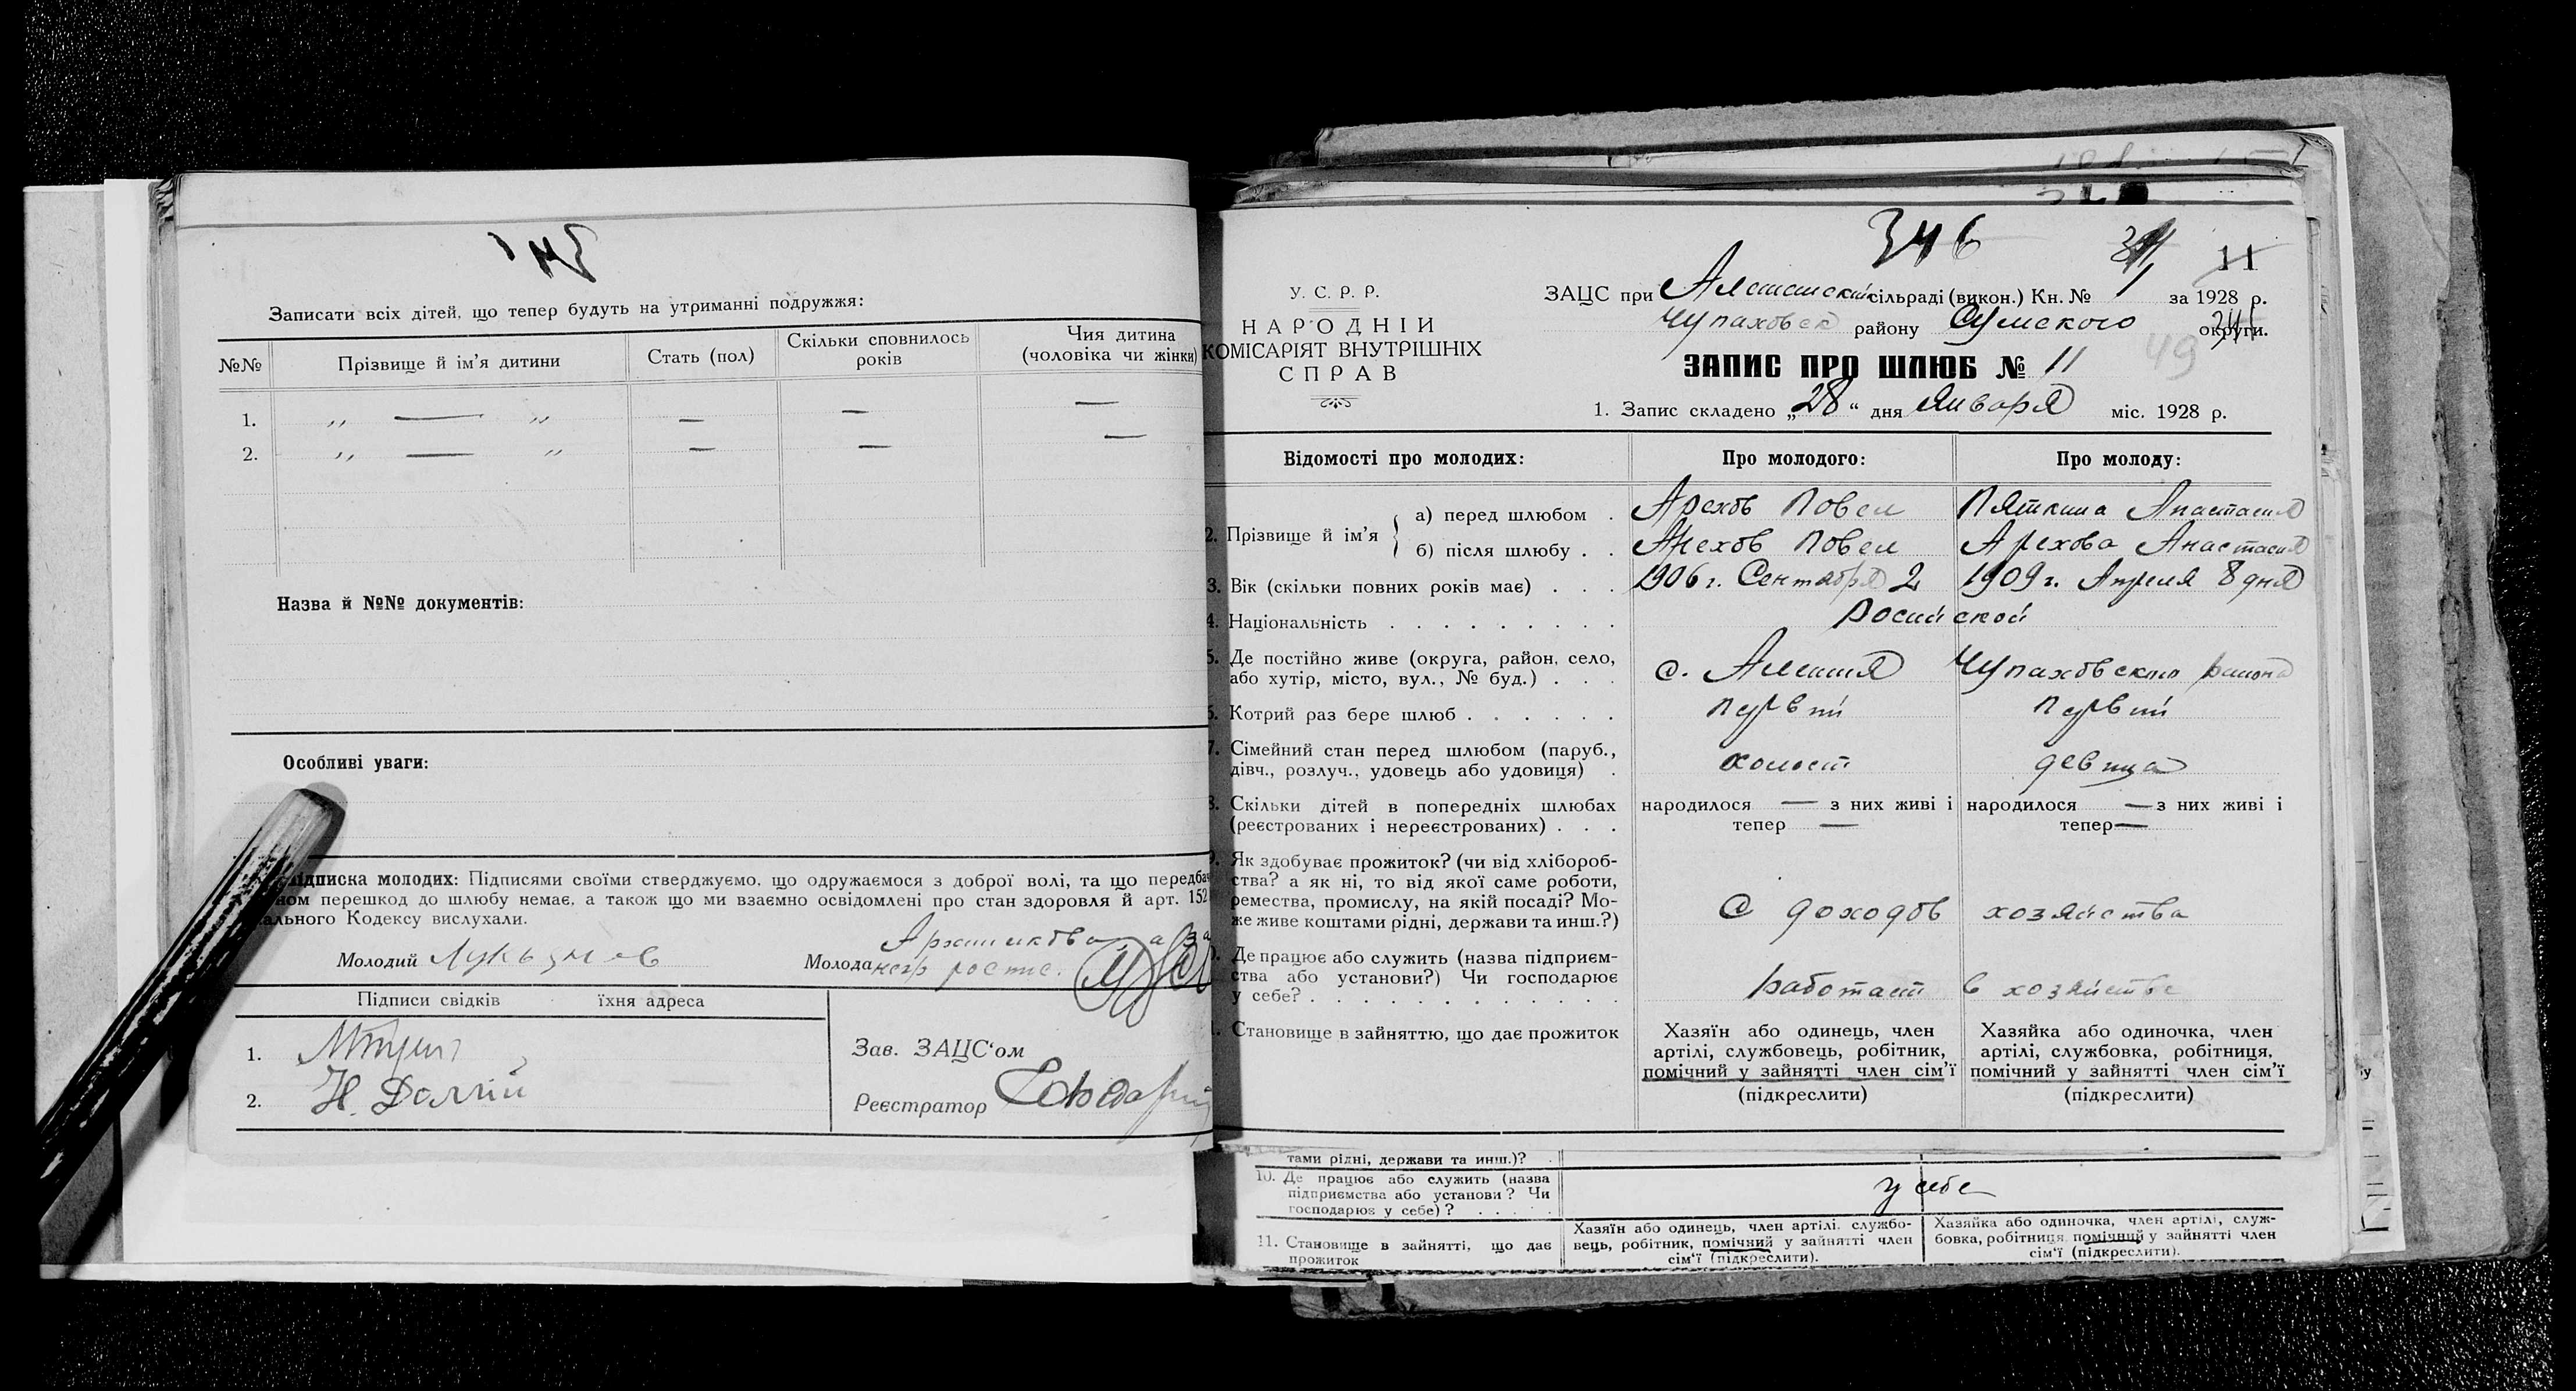 Записати всіх дітей, що тепер будуть на утриманні подружжя:
№№ Прізвище й ім'я дитини Стать (пол) Скільки сповнилось років Чия дитина (чоловіка чи жінки)
1. „ — „ — — —
2. „ — „ — — —
Назва й №№ документів:
Особливі уваги:
підписка молодих: Підписями своїми стверджуємо, що одружаємося з доброї волі, та що передбач
ном перешкод до шлюбу немає, а також що ми взаємно освідомлені про стан здоровля й арт. 152
ального Кодексу вислухали.
Молодий
Молода
Підписи свідків їхня адреса
1.
2. Н. Долгий
Зав. ЗАЦС'ом
Реєстратор
346
11
У. С. Р. Р.
НАРОДНІЙ
КОМІСАРІЯТ ВНУТРІШНІХ
СПРАВ
ЗАЦС при сільраді (викон.) Кн. № 1 за 1928 р.
Чупаховск району Сумского округи.
49
ЗАПИС ПРО ШЛЮБ № 11
1. Запис складено „28“ дня Января міс. 1928 р.
Відомості про молодих: Про молодого: Про молоду:
2. Прізвище й ім'я { а) перед шлюбом . Арехов Повел Пяткина Анастасия
б) після шлюбу . . Арехов Повел Арехова Анастасия
3. Вік (скільки повних років має) . . . 1906 г. Сентября 2 1909 г. Апреля 8 дня
4. Національність . . . . . . . . . Росийской
5. Де постійно живе (округа, район, село,
або хутір, місто, вул., № буд.) . . . с. Алешня Чупаховского района
6. Котрий раз бере шлюб . . . . . . первий первий
7. Сімейний стан перед шлюбом (паруб.,
дівч., розлуч., удовець або удовиця) . холост девица
8. Скільки дітей в попередніх шлюбах
(реєстрованих і нереєстрованих) . . .
народилося — з них живі і тепер —
народилося — з них живі і тепер —
9. Як здобуває прожиток? (чи від хлібороб-
ства? а як ні, то від якої саме роботи,
ремества, промислу, на якій посаді? Мо-
же живе коштами рідні, держави та инш.?)
С доходов хозяйства
Де працює або служить (назва підприєм-
ства або установи?) Чи господарює
у себе? . . . . . . . . . . . . .
работает в хозяйстве
Становище в зайняттю, що дає прожиток
Хазяїн або одинець, член
артілі, службовець, робітник,
помічний у зайнятті член сім'ї
(підкреслити)
Хазяйка або одиночка, член
артілі, службовка, робітниця,
помічний у зайнятті член сім'ї
(підкреслити)
тами рідні, держави та инш.)?
10. Де працює або служить (назва
підприємства або установи? Чи
господарює у себе)? . . . . .
у себе
11. Становище в зайнятті, що дає
прожиток
Хазяїн або одинець, член артілі, службо-
вець, робітник, помічний у зайнятті член
сім'ї (підкреслити).
Хазяйка або одиночка, член артілі, служ-
бовка, робітниця, помічний у зайнятті член
сім'ї (підкреслити).